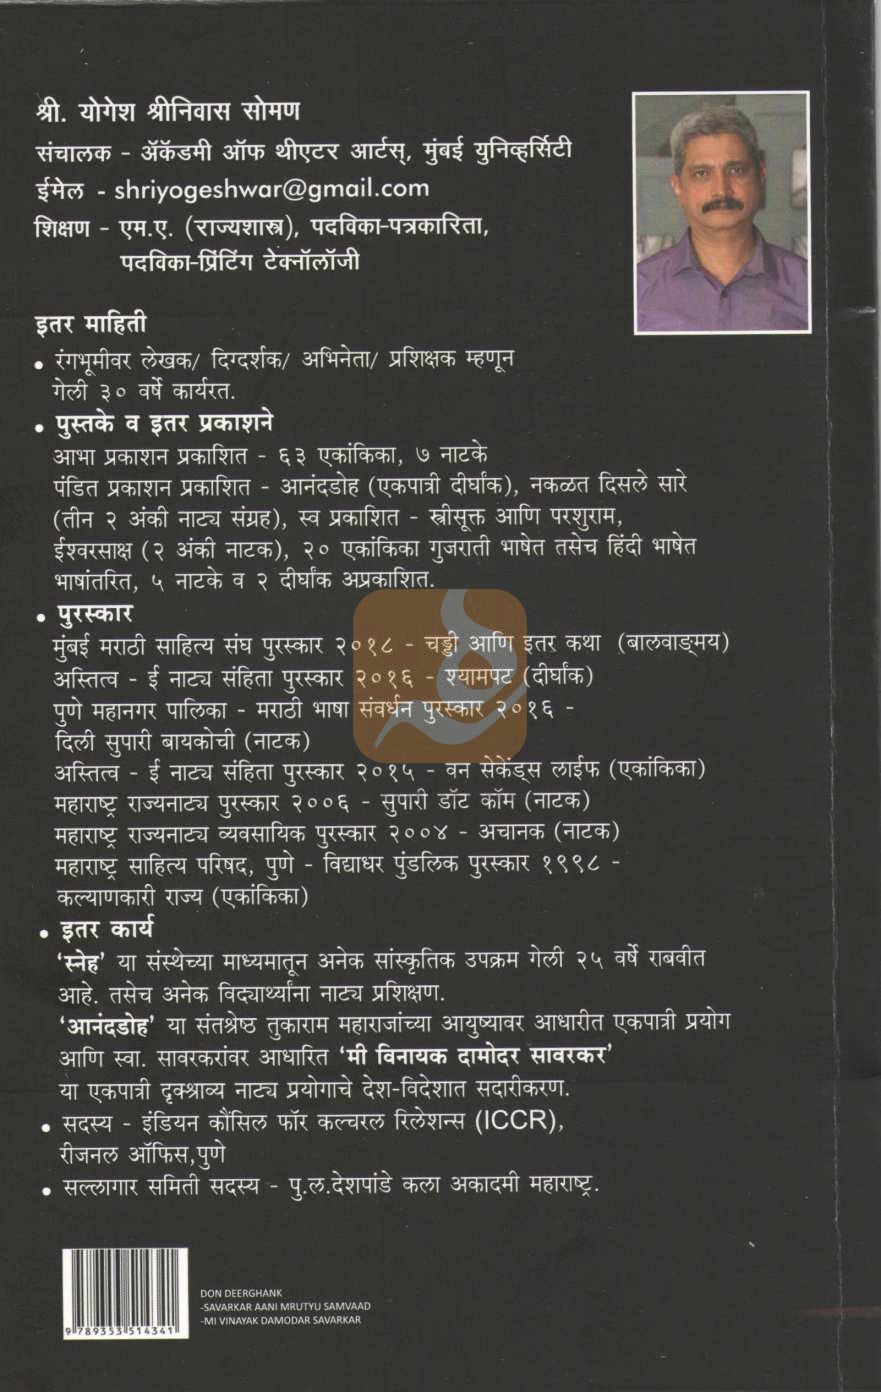 श्री. योगेश श्रीनिवास सोमण
संचालक - ॲकॅडमी ऑफ थीएटर आर्टस्, मुंबई युनिव्हर्सिटी
ईमेल - shriyogeshwar@gmail.com
शिक्षण - एम.ए. (राज्यशास्त्र), पदविका-पत्रकारिता,
पदविका-प्रिंटिंग टेक्नॉलॉजी
इतर माहिती
• रंगभूमीवर लेखक/ दिग्दर्शक/ अभिनेता/ प्रशिक्षक म्हणून
गेली ३० वर्षे कार्यरत.
• पुस्तके व इतर प्रकाशने
आभा प्रकाशन प्रकाशित - ६३ एकांकिका, ७ नाटके
पंडित प्रकाशन प्रकाशित - आनंदडोह (एकपात्री दीर्घांक), नकळत दिसले सारे
(तीन २ अंकी नाट्य संग्रह), स्व प्रकाशित - स्त्रीसूक्त आणि परशुराम,
ईश्वरसाक्ष (२ अंकी नाटक), २० एकांकिका गुजराती भाषेत तसेच हिंदी भाषेत
भाषांतरित, ५ नाटके व २ दीर्घांक अप्रकाशित.
• पुरस्कार
मुंबई मराठी साहित्य संघ पुरस्कार २०१८ - चड्डी आणि इतर कथा (बालवाङ्मय)
अस्तित्व - ई नाट्य संहिता पुरस्कार २०१६ - श्यामपट (दीर्घांक)
पुणे महानगर पालिका - मराठी भाषा संवर्धन पुरस्कार २०१६ -
दिली सुपारी बायकोची (नाटक)
अस्तित्व - ई नाट्य संहिता पुरस्कार २०१५ - वन सेकेंड्स लाईफ (एकांकिका)
महाराष्ट्र राज्यनाट्य पुरस्कार २००६ - सुपारी डॉट कॉम (नाटक)
महाराष्ट्र राज्यनाट्य व्यवसायिक पुरस्कार २००४ - अचानक (नाटक)
महाराष्ट्र साहित्य परिषद, पुणे - विद्याधर पुंडलिक पुरस्कार १९९८ -
कल्याणकारी राज्य (एकांकिका)
• इतर कार्य
'स्नेह' या संस्थेच्या माध्यमातून अनेक सांस्कृतिक उपक्रम गेली २५ वर्षे राबवीत
आहे. तसेच अनेक विद्यार्थ्यांना नाट्य प्रशिक्षण.
'आनंदडोह' या संतश्रेष्ठ तुकाराम महाराजांच्या आयुष्यावर आधारीत एकपात्री प्रयोग
आणि स्वा. सावरकरांवर आधारित 'मी विनायक दामोदर सावरकर'
या एकपात्री दृक्श्राव्य नाट्य प्रयोगाचे देश-विदेशात सदारीकरण.
• सदस्य - इंडियन कौंसिल फॉर कल्चरल रिलेशन्स (ICCR),
रीजनल ऑफिस,पुणे
• सल्लागार समिती सदस्य - पु.ल.देशपांडे कला अकादमी महाराष्ट्र.
DON DEERGHANK
-SAVARKAR AANI MRUTYU SAMVAAD
-MI VINAYAK DAMODAR SAVARKAR
9 789353 514341